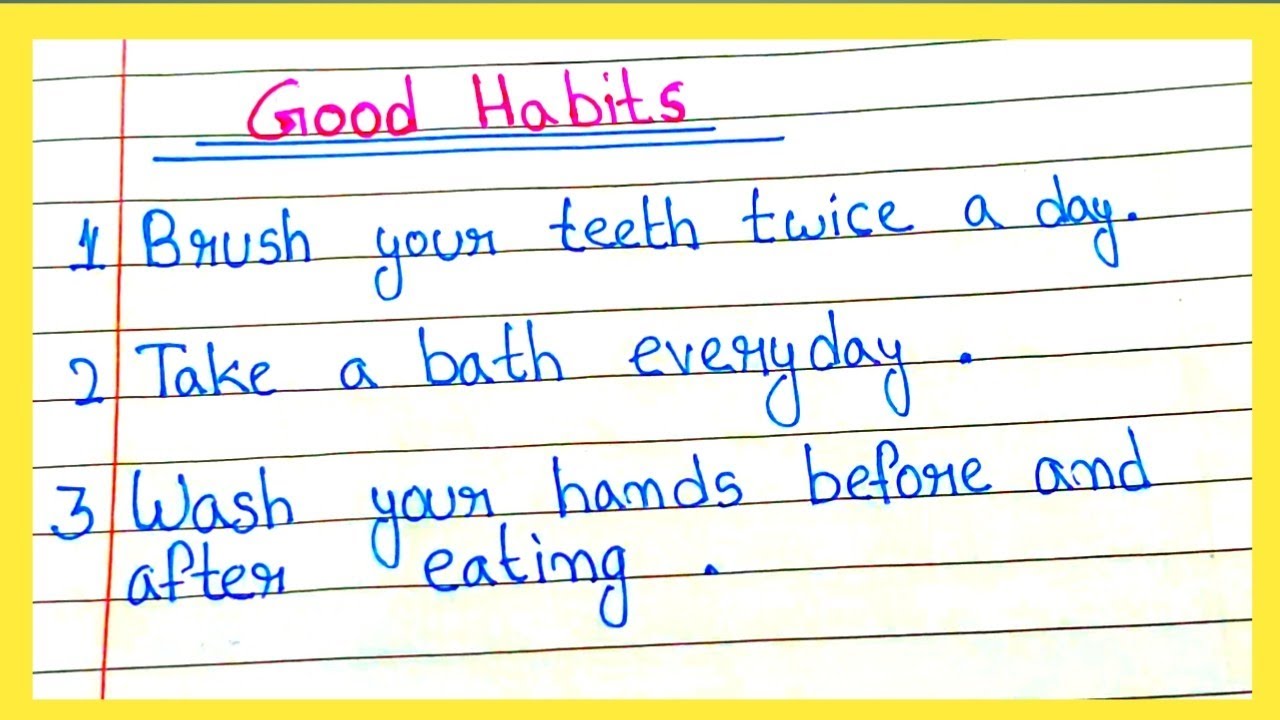 Good Habits
1 Brush your teeth twice a day.
2 Take a bath everyday.
3 Wash your hands before and
after eating.